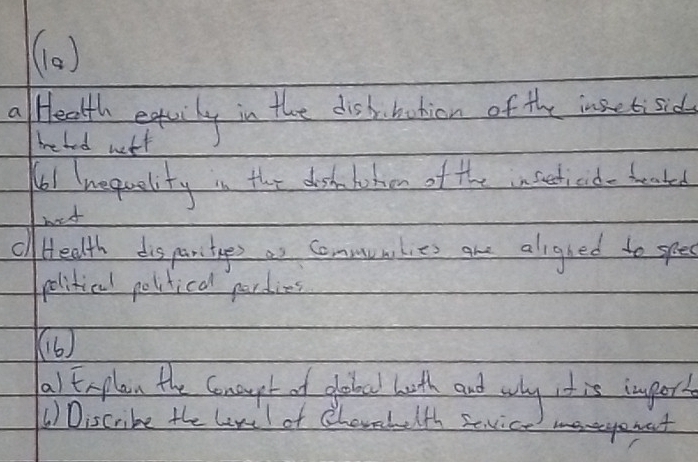 (1a)
a Health equity in the distribution of the insectiside
treted nett
(b) Inequality in the distribution of the insecticide treated
net
c) Health disparityes as Communities are aligned to spec
political political parties
(1b)
a) Explain the Concept of global heath and why it is import
b) Discribe the level of health Service